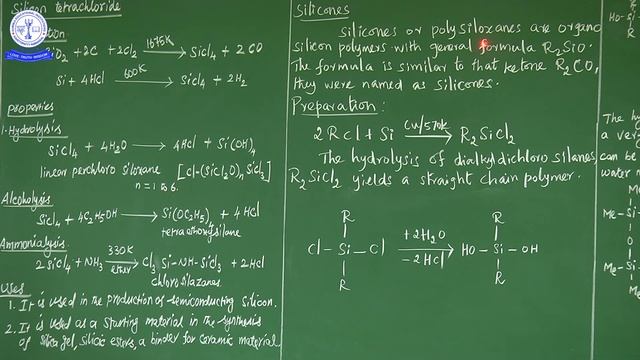 Silicon tetrachloride
SiO2 + 2C + 2Cl2 1675K → SiCl4 + 2CO
Si + 4HCl 600K → SiCl4 + 2H2
Properties
1. Hydrolysis
SiCl4 + 4H2O → 4HCl + Si(OH)4
linear perchloro siloxane [Cl-(SiCl2O)n SiCl3]
n = 1 to 6.
Alcoholysis
SiCl4 + 4C2H5OH → Si(OC2H5)4 + 4HCl
tetraethoxysilane
Ammonialysis
2SiCl4 + NH3 330K ether → Cl3 Si-NH-SiCl3 + 2HCl
chlorosilazanes
Uses
1. It is used in the production of semiconducting silicon.
2. It is used as a starting material in the synthesis
of silica gel, silicic esters, a binder for ceramic material
Silicones
Silicones or polysiloxanes are organo
silicon polymers with general formula R2SiO.
The formula is similar to that ketone R2CO,
they were named as silicones.
Preparation:
2RCl + Si Cu/570K → R2SiCl2
The hydrolysis of dialkyldichloro silanes
R2SiCl2 yields a straight chain polymer.
R
Cl-Si-Cl
R
+2H2O
-2HCl →
R
HO-Si-OH
R
HO-Si-
R
The hy
a ver
can be
water
Me
Me-Si-
O
Me-Si-
Me